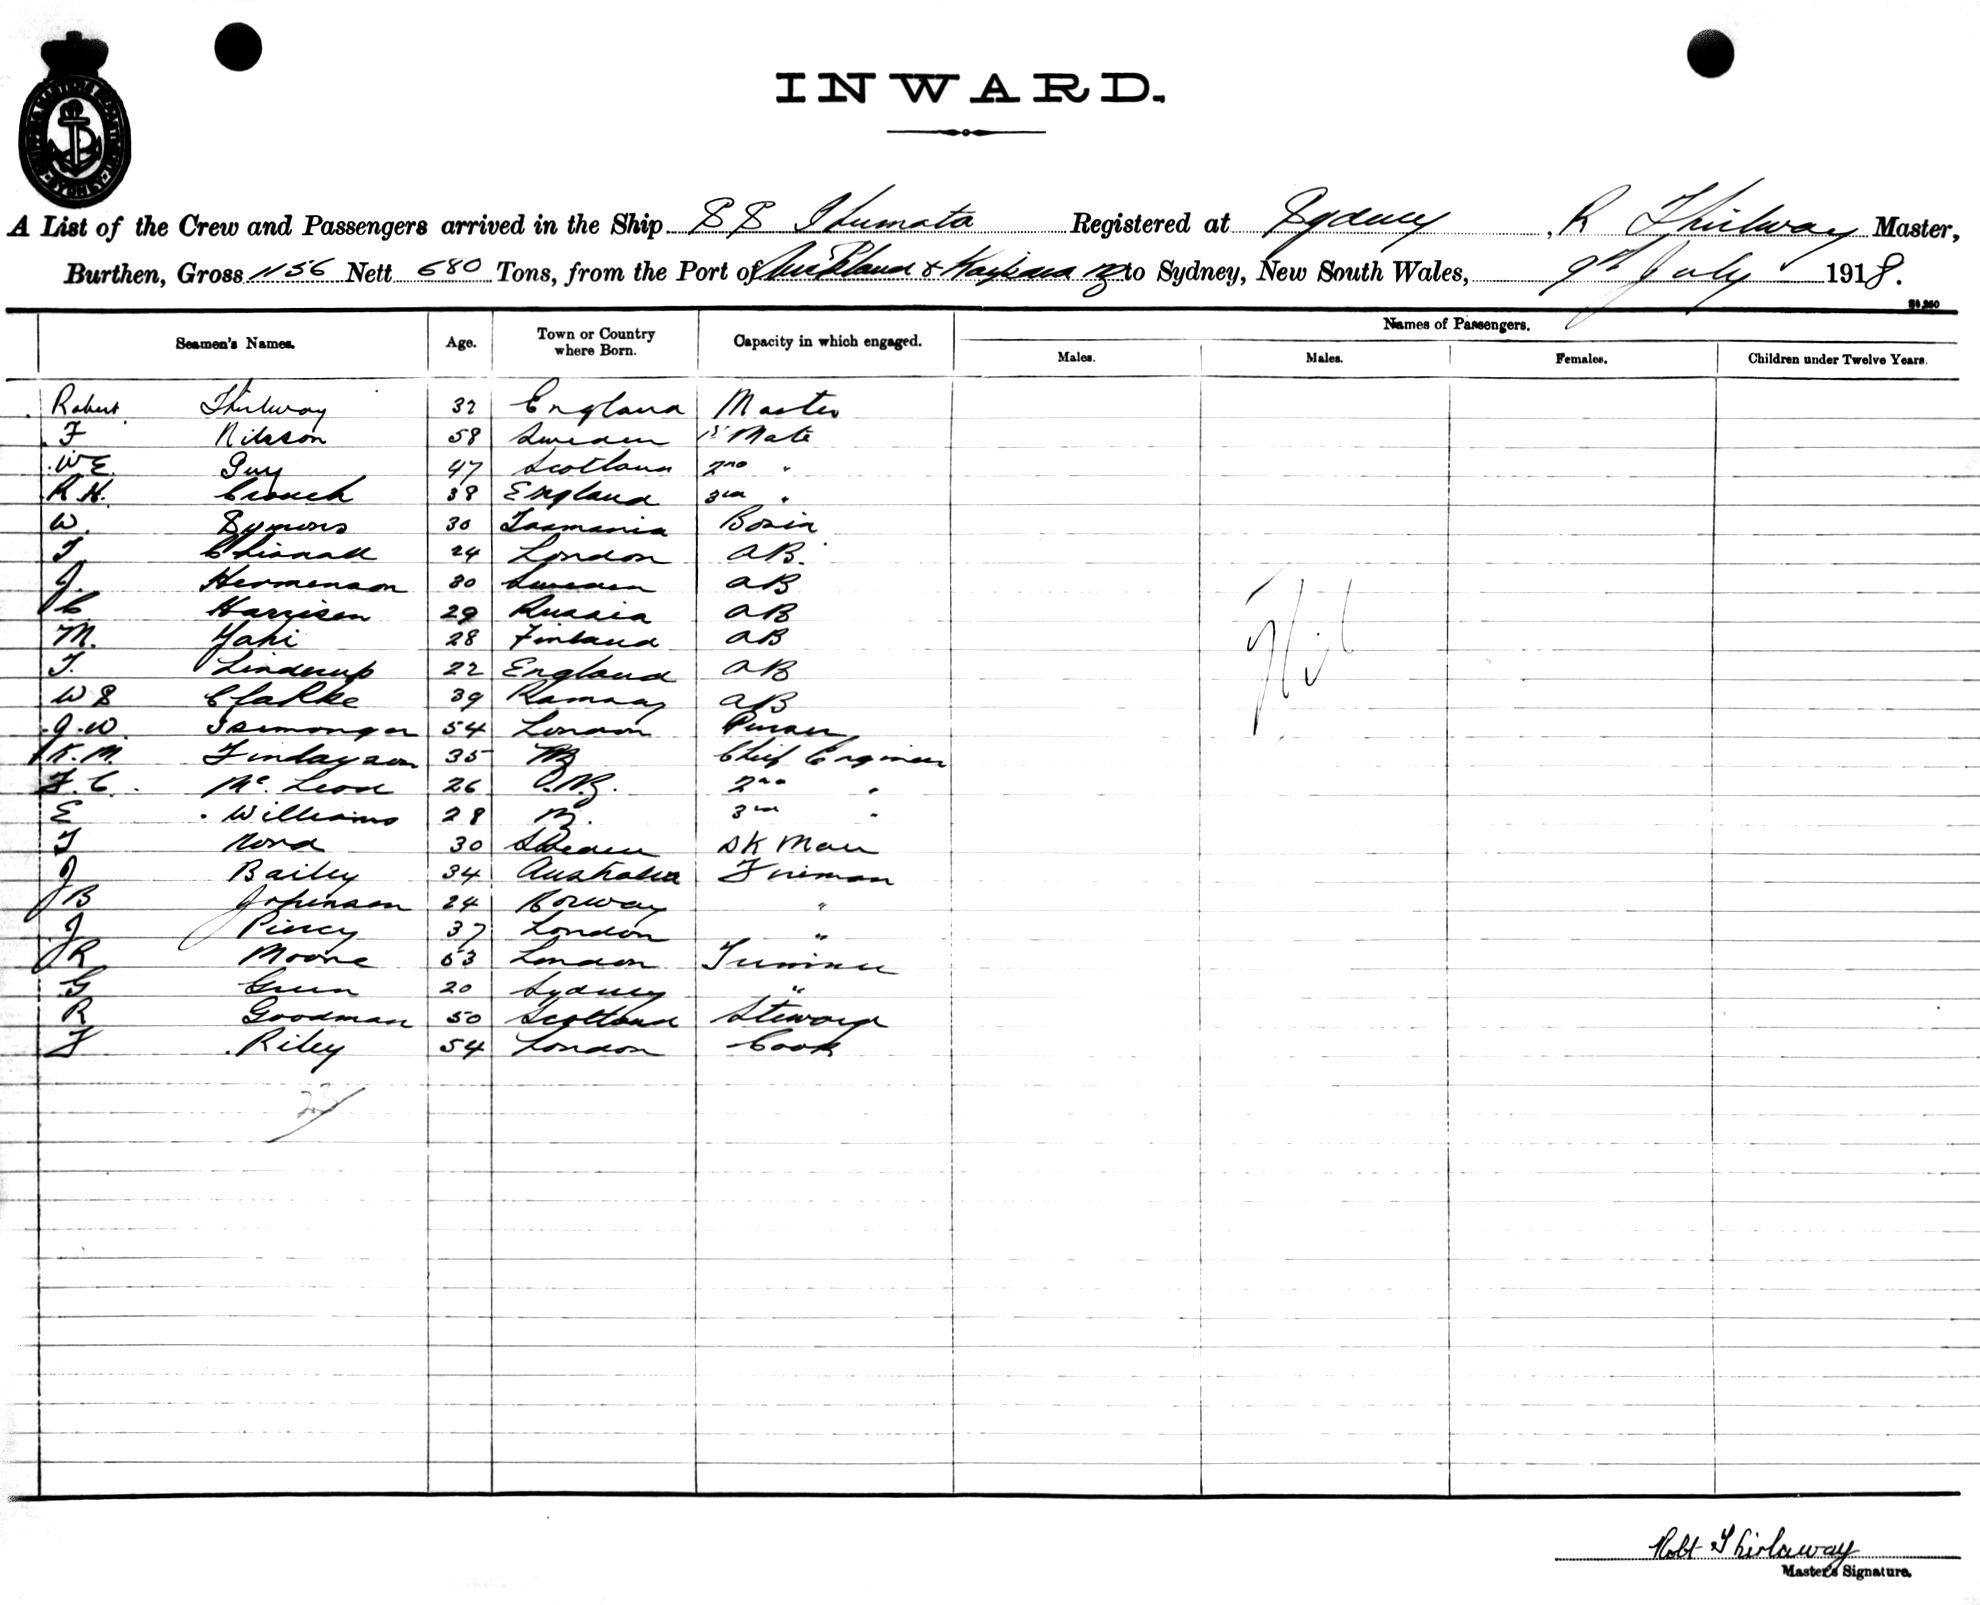 INWARD.
A List of the Crew and Passengers arrived in the Ship SS Registered at Sydney, R Thirlway Master,
Burthen, Gross 1156 Nett 680 Tons, from the Port of Auckland & to Sydney, New South Wales, 9th July 1918.
Names of Passengers.
Seamen's Names. Age. Town or Country where Born. Capacity in which engaged. Males. Males. Females. Children under Twelve Years.
Robert Thirlway 32 England Master
F Nilsson 58 Sweden 1st Mate
W E Guy 47 Scotland 2nd "
R. H. Crouch 38 England 3rd "
W. Symons 30 Tasmania Bosin
T 24 London AB.
J. Hermenson 30 Sweden AB
C Harrisen 29 Russia AB
M. 28 Finland AB
T. Linderup 22 England AB
W S Clarke 39 Ramsay AB
J. W. Isemonger 54 London Purser
K. M. Findayson 35 NZ Chief Engineer
F. C. Mc. Leod 26 N.Z. 2nd "
E Williams 28 NZ. 3rd "
T Nord 30 Sweden DK Man
J Bailey 34 Australia Fireman
J B Johinson 24 Norway "
J Piercy 37 London "
J R Moore 53 London Trimmer
G Green 20 Sydney "
R Goodman 50 Scotland Steward
F Riley 54 London Cook
23
Nil
Robt Thirlaway
Master's Signature.